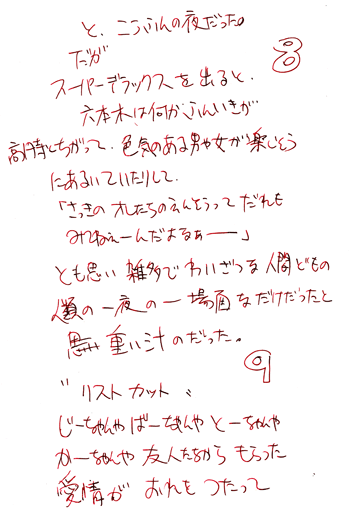 と、こうふんの夜だった。
8
だが
スーパーデラックスを出ると、
六本木は何かふんいきが
高時とちがって、色気のある男や女が楽しそう
にあるいていたりして、
「さっきの オレたちのえんそうって だれも
みてねぇーんだよなぁー」
とも思い 雑多で わいざつな 人間どもの
人類の 一夜の 一場面なだけだったと
思い 重い汁 のだった。
9
〝リストカット〟
じーちゃんや ばーちゃんや とーちゃんや
かーちゃんや 友人たちから もらった
愛情が おれを つたって